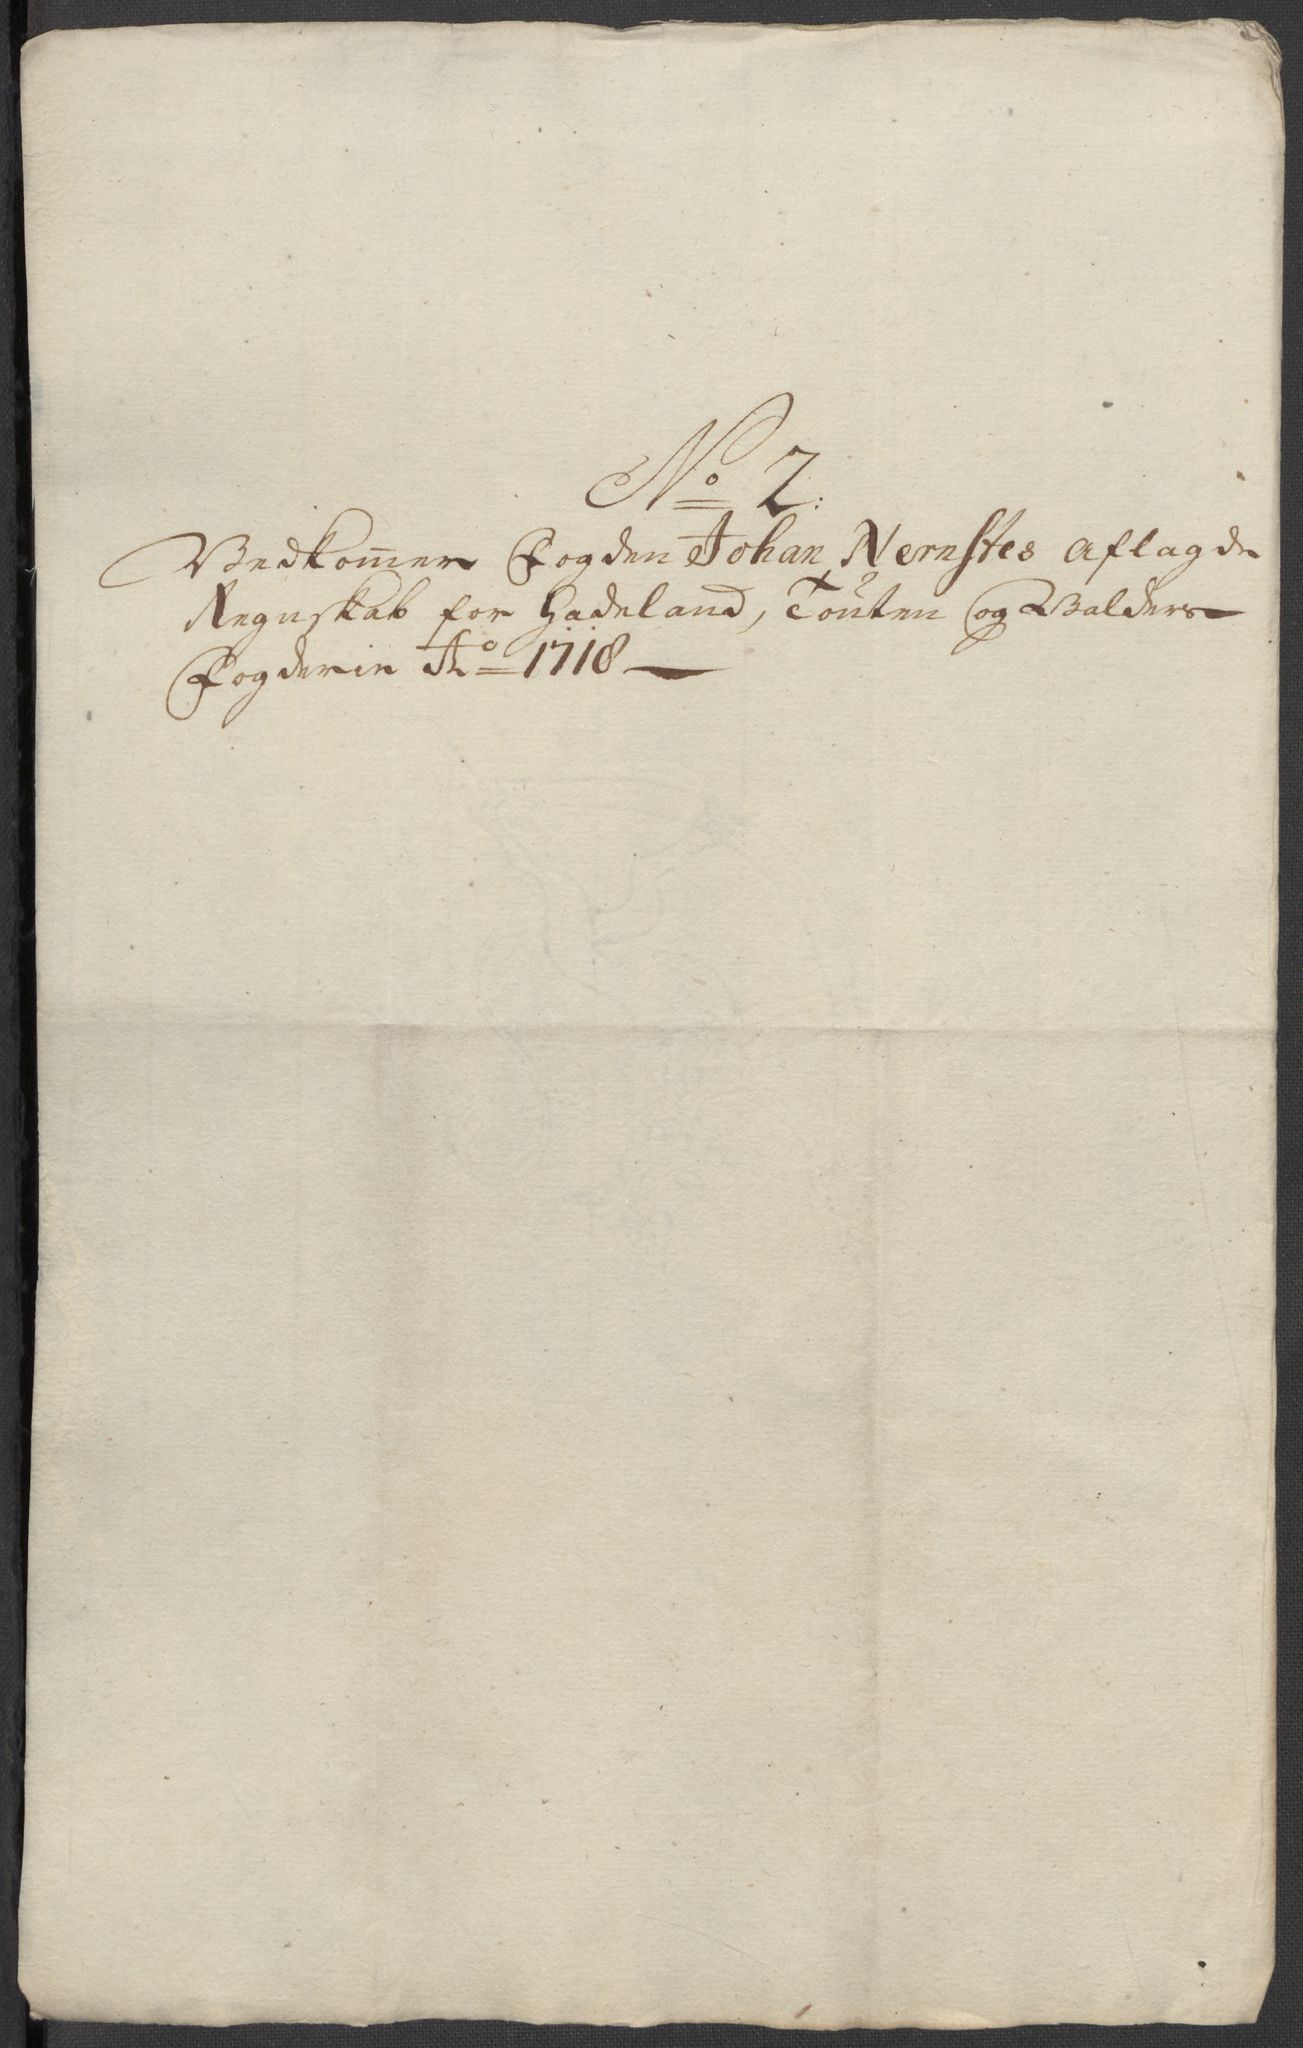 No 2:
Vedkom̄er Fogden Johan Nernstes aflagde
Regnskab for Hadeland, Touten og Valders
Fogderie Ao 1718